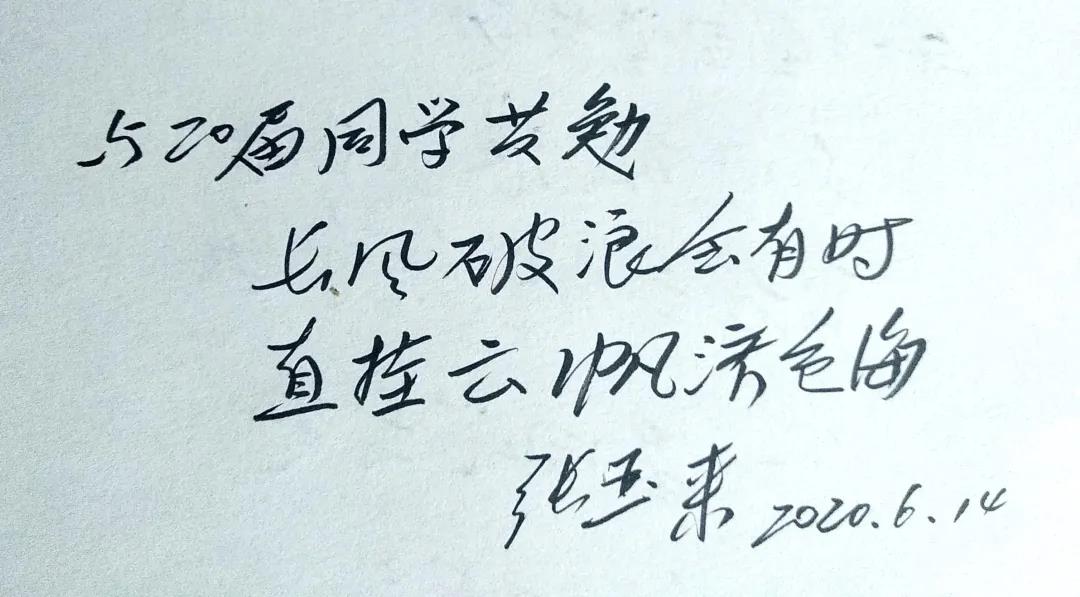 与20届同学共勉
长风破浪会有时
直挂云帆济仓海
张玉来 2020.6.14